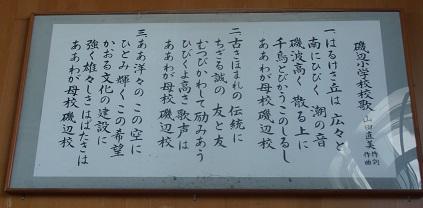 磯辺小学校校歌 山田直美 作詞 作曲
一、はるけき丘は 広々と
南にひびく 潮の音
磯波高く 散る上に
千鳥とびかうこのしるし
ああわが母校 磯辺校
二、古きほまれの 伝統に
ちぎる誠の 友と友
むつびかわして 励みあう
ひびくよ高き 歌声は
ああわが母校 磯辺校
三、ああ洋々の この空に
ひとみ輝く この希望
かおる文化の 建設に
強く雄々しさ はばたきは
ああわが母校 磯辺校